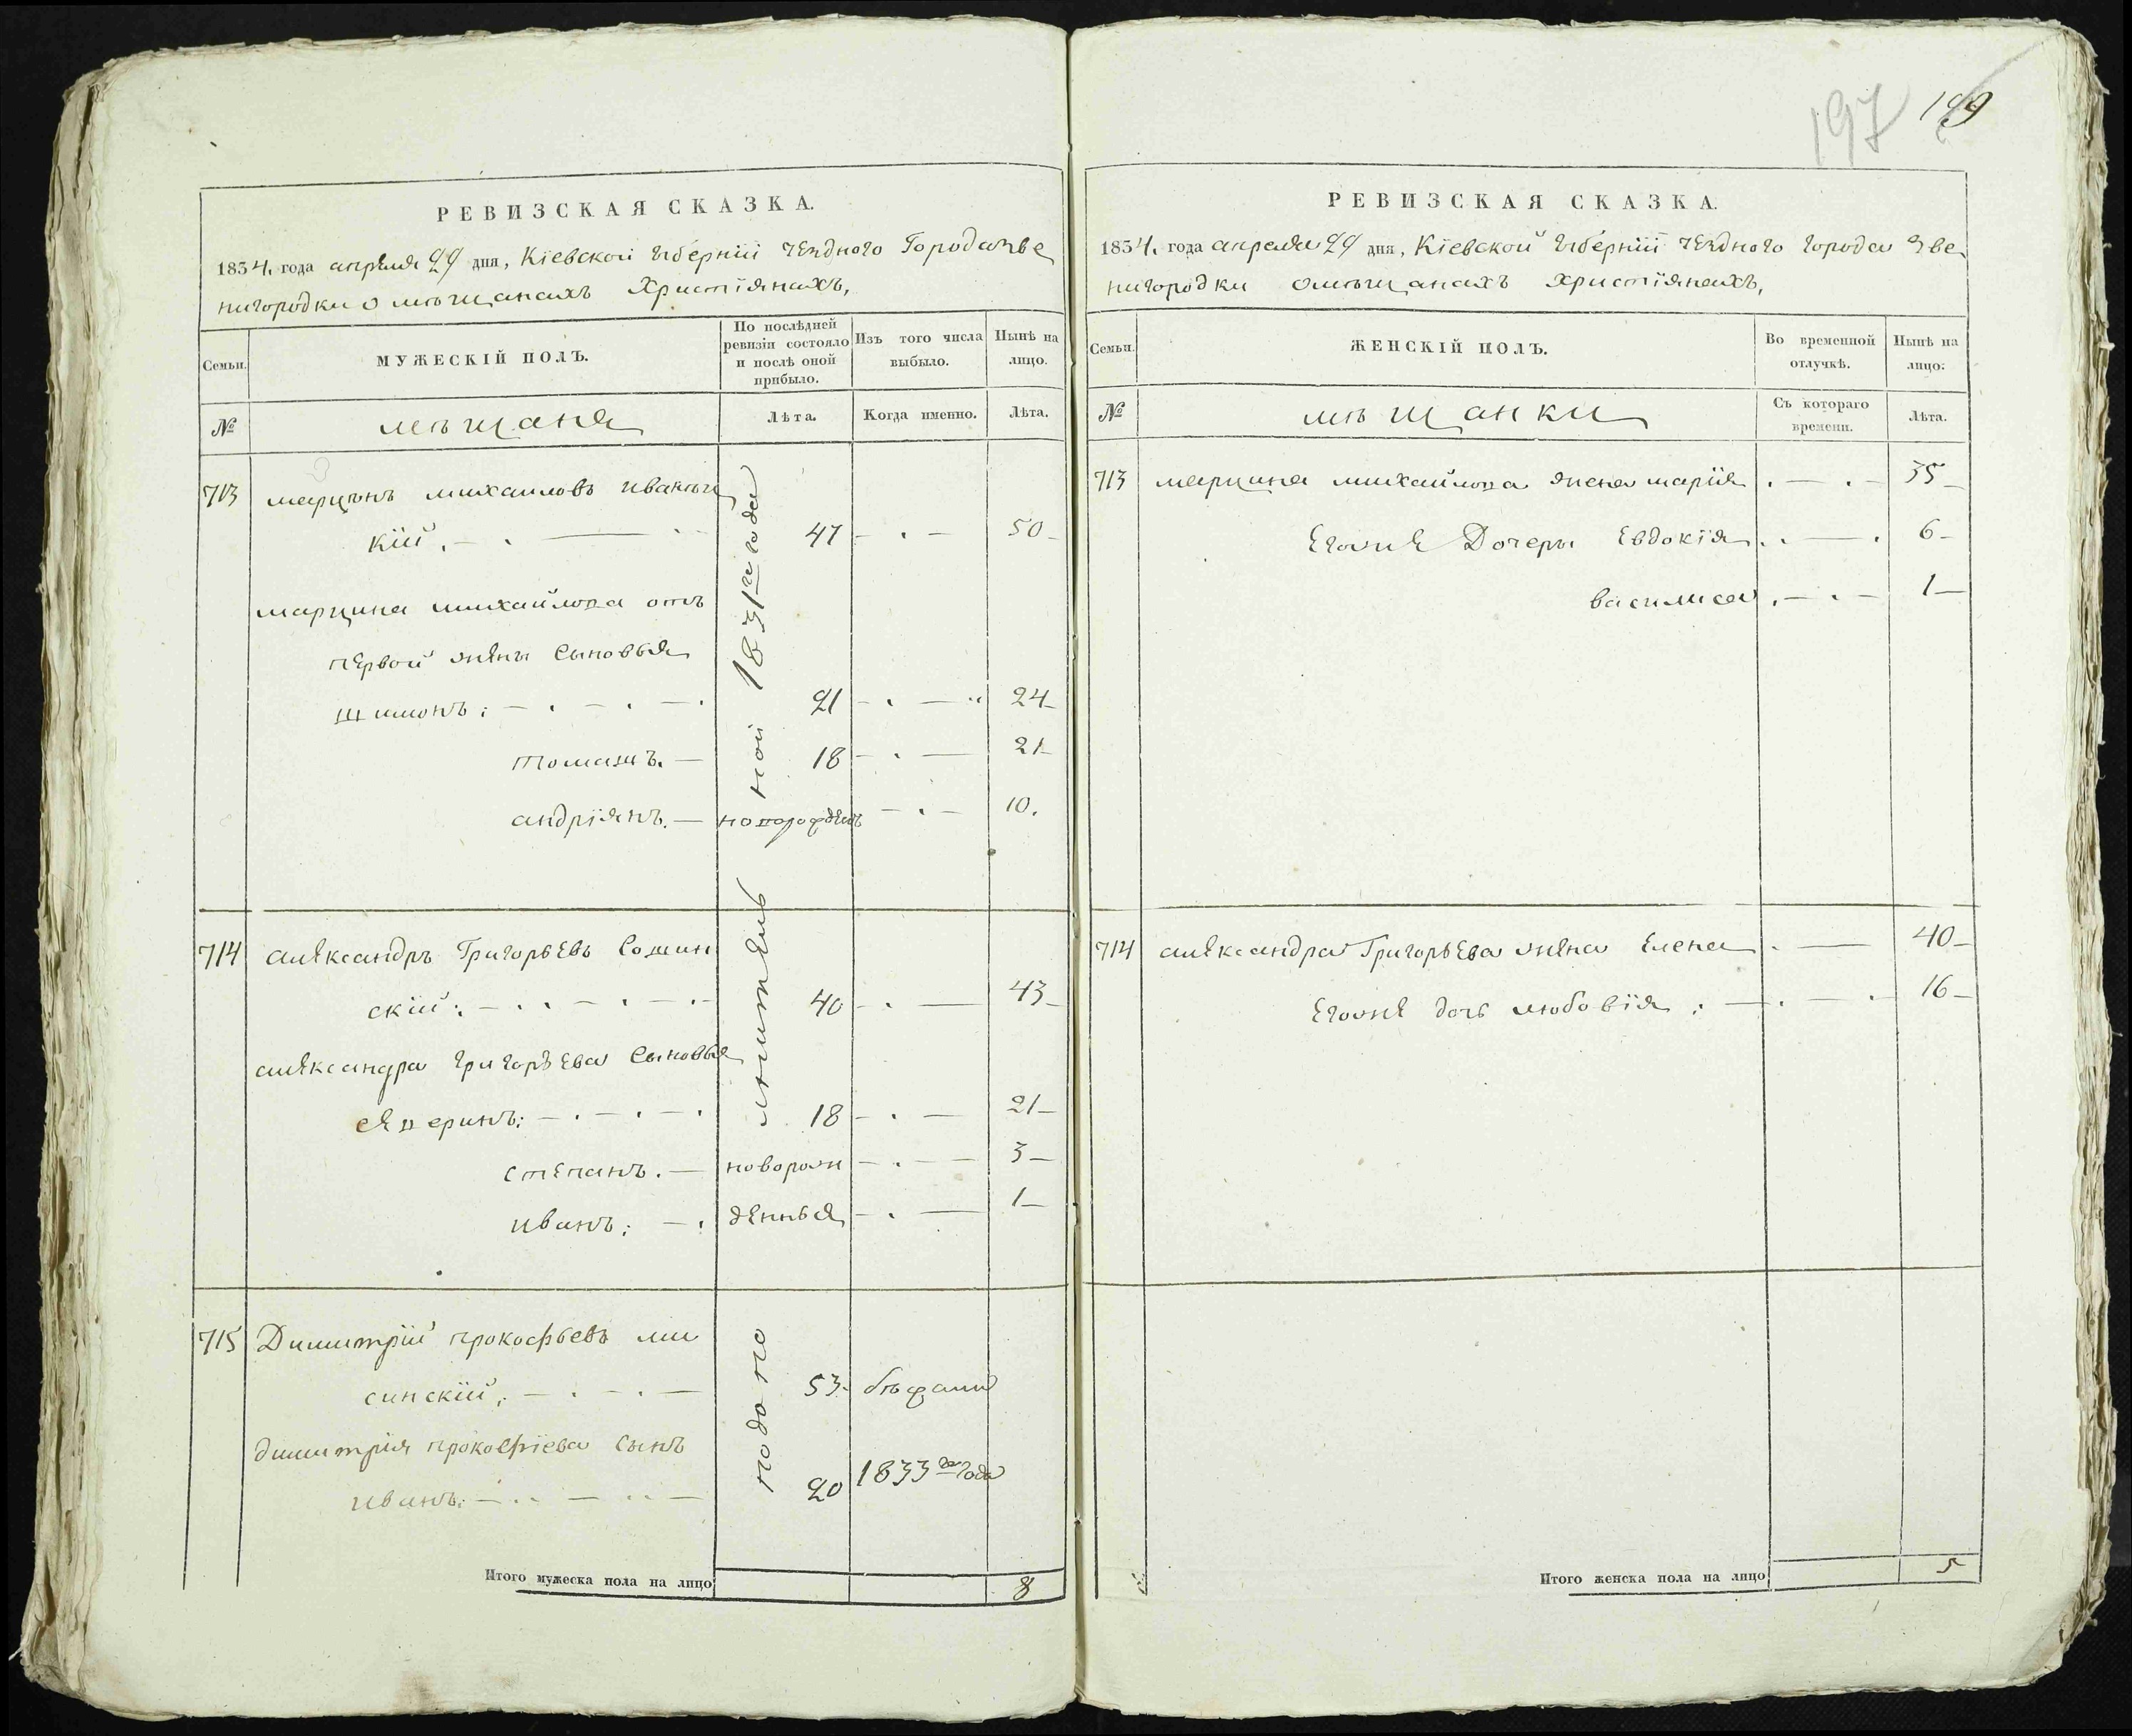 197 199
РЕВИЗСКАЯ СКАЗКА.
1834. года апреля 29 дня, Кіевской губерніи уездного Города Зве
нигородки о мѣщанахъ Христіянахъ,
Семьи.
МУЖЕСКІЙ ПОЛЪ.
По послѣдней ревизіи состояло и послѣ оной прибыло.
Изъ того числа выбыло.
Нынѣ на лицо.
№
мѣщаня
Лѣта.
Когда именно.
Лѣта.
713 марцынъ михаиловъ
кій. 47 50
марцина михайлова отъ
первой жены сыновья
шимонъ: 21 24
томашъ. 18 21
андріянъ. новорожденъ 10.
714 александръ Григорьевъ Сошин
скій: 40 43
александра григорьева сыновья
северинъ: 18 21
степанъ. новорож 3
иванъ: денныя 1
715 Димитрій прокофьевъ ми
синскій: 53 бѣжали
димитрія прокофіева сынъ
иванъ: 20 1833го года
1831го года
Итого мужеска пола на лицо 8
РЕВИЗСКАЯ СКАЗКА.
1834. года апреля 29 дня, Кіевской губерніи уездного города Зве
нигородки о мѣщанахъ христіянахъ,
Семьи.
ЖЕНСКІЙ ПОЛЪ.
Во временной отлучкѣ.
Нынѣ на лицо:
№
мѣщанки
Съ котораго времени.
Лѣта.
713 марцина михайлова жена марія 35
Егоже Дочеры Евдокія 6
василиса 1
714 александра Григорьева жена Елена 40
Егоже дочь любовія: 16
Итого женска пола на лицо 5